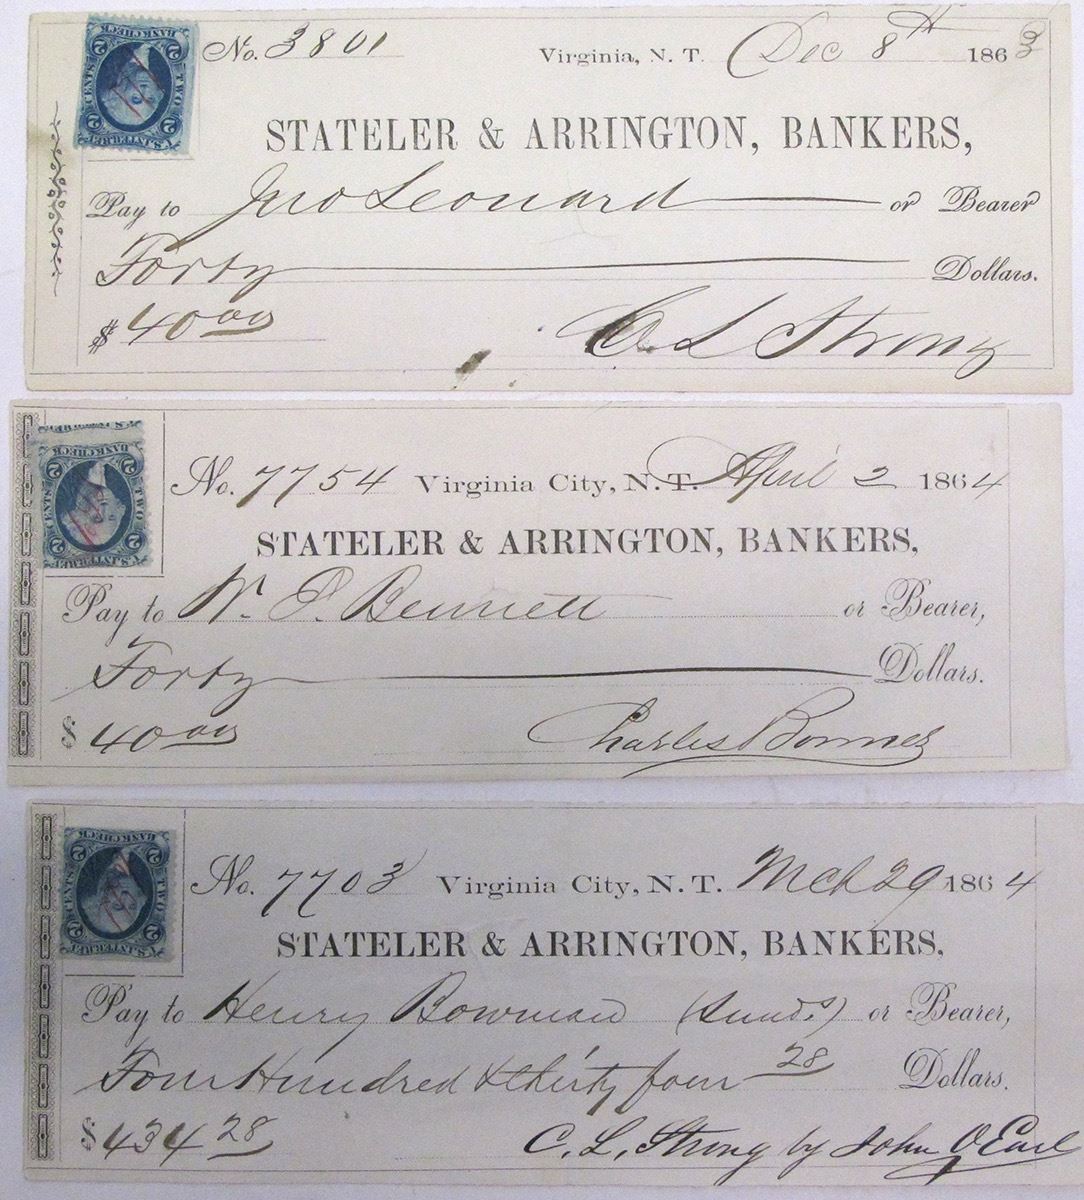 No. 3801 Virginia, N. T. Dec 8th 1863
STATELER & ARRINGTON, BANKERS,
Pay to Jno Leonard or Bearer
Forty Dollars.
$ 40 00 C L Strong
BANK CHECK
2 2
CENTS TWO
2 2
U.S. INTER. REV.
No. 7754 Virginia City, N. T. April 2 1864
STATELER & ARRINGTON, BANKERS,
Pay to W. P. Bennett or Bearer,
Forty Dollars.
$ 40 00 Charles Bonner
BANK CHECK
2 2
CENTS TWO
2 2
U.S. INTER. REV.
No. 7703 Virginia City, N. T. Mch 29 1864
STATELER & ARRINGTON, BANKERS,
Pay to Henry Bowman (Sunds) or Bearer,
Four Hundred & thirty four 28 Dollars.
$ 434 28 C. L. Strong by John O Earl
BANK CHECK
2 2
CENTS TWO
2 2
U.S. INTER. REV.